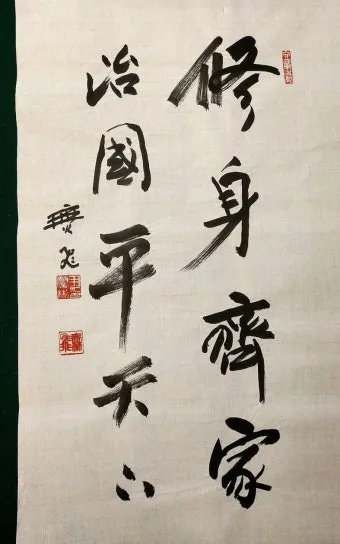 修身齊家
治國平天下